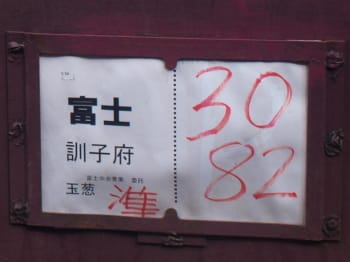 富士
訓子府
富士中央青果 委托
玉葱
準
30
82